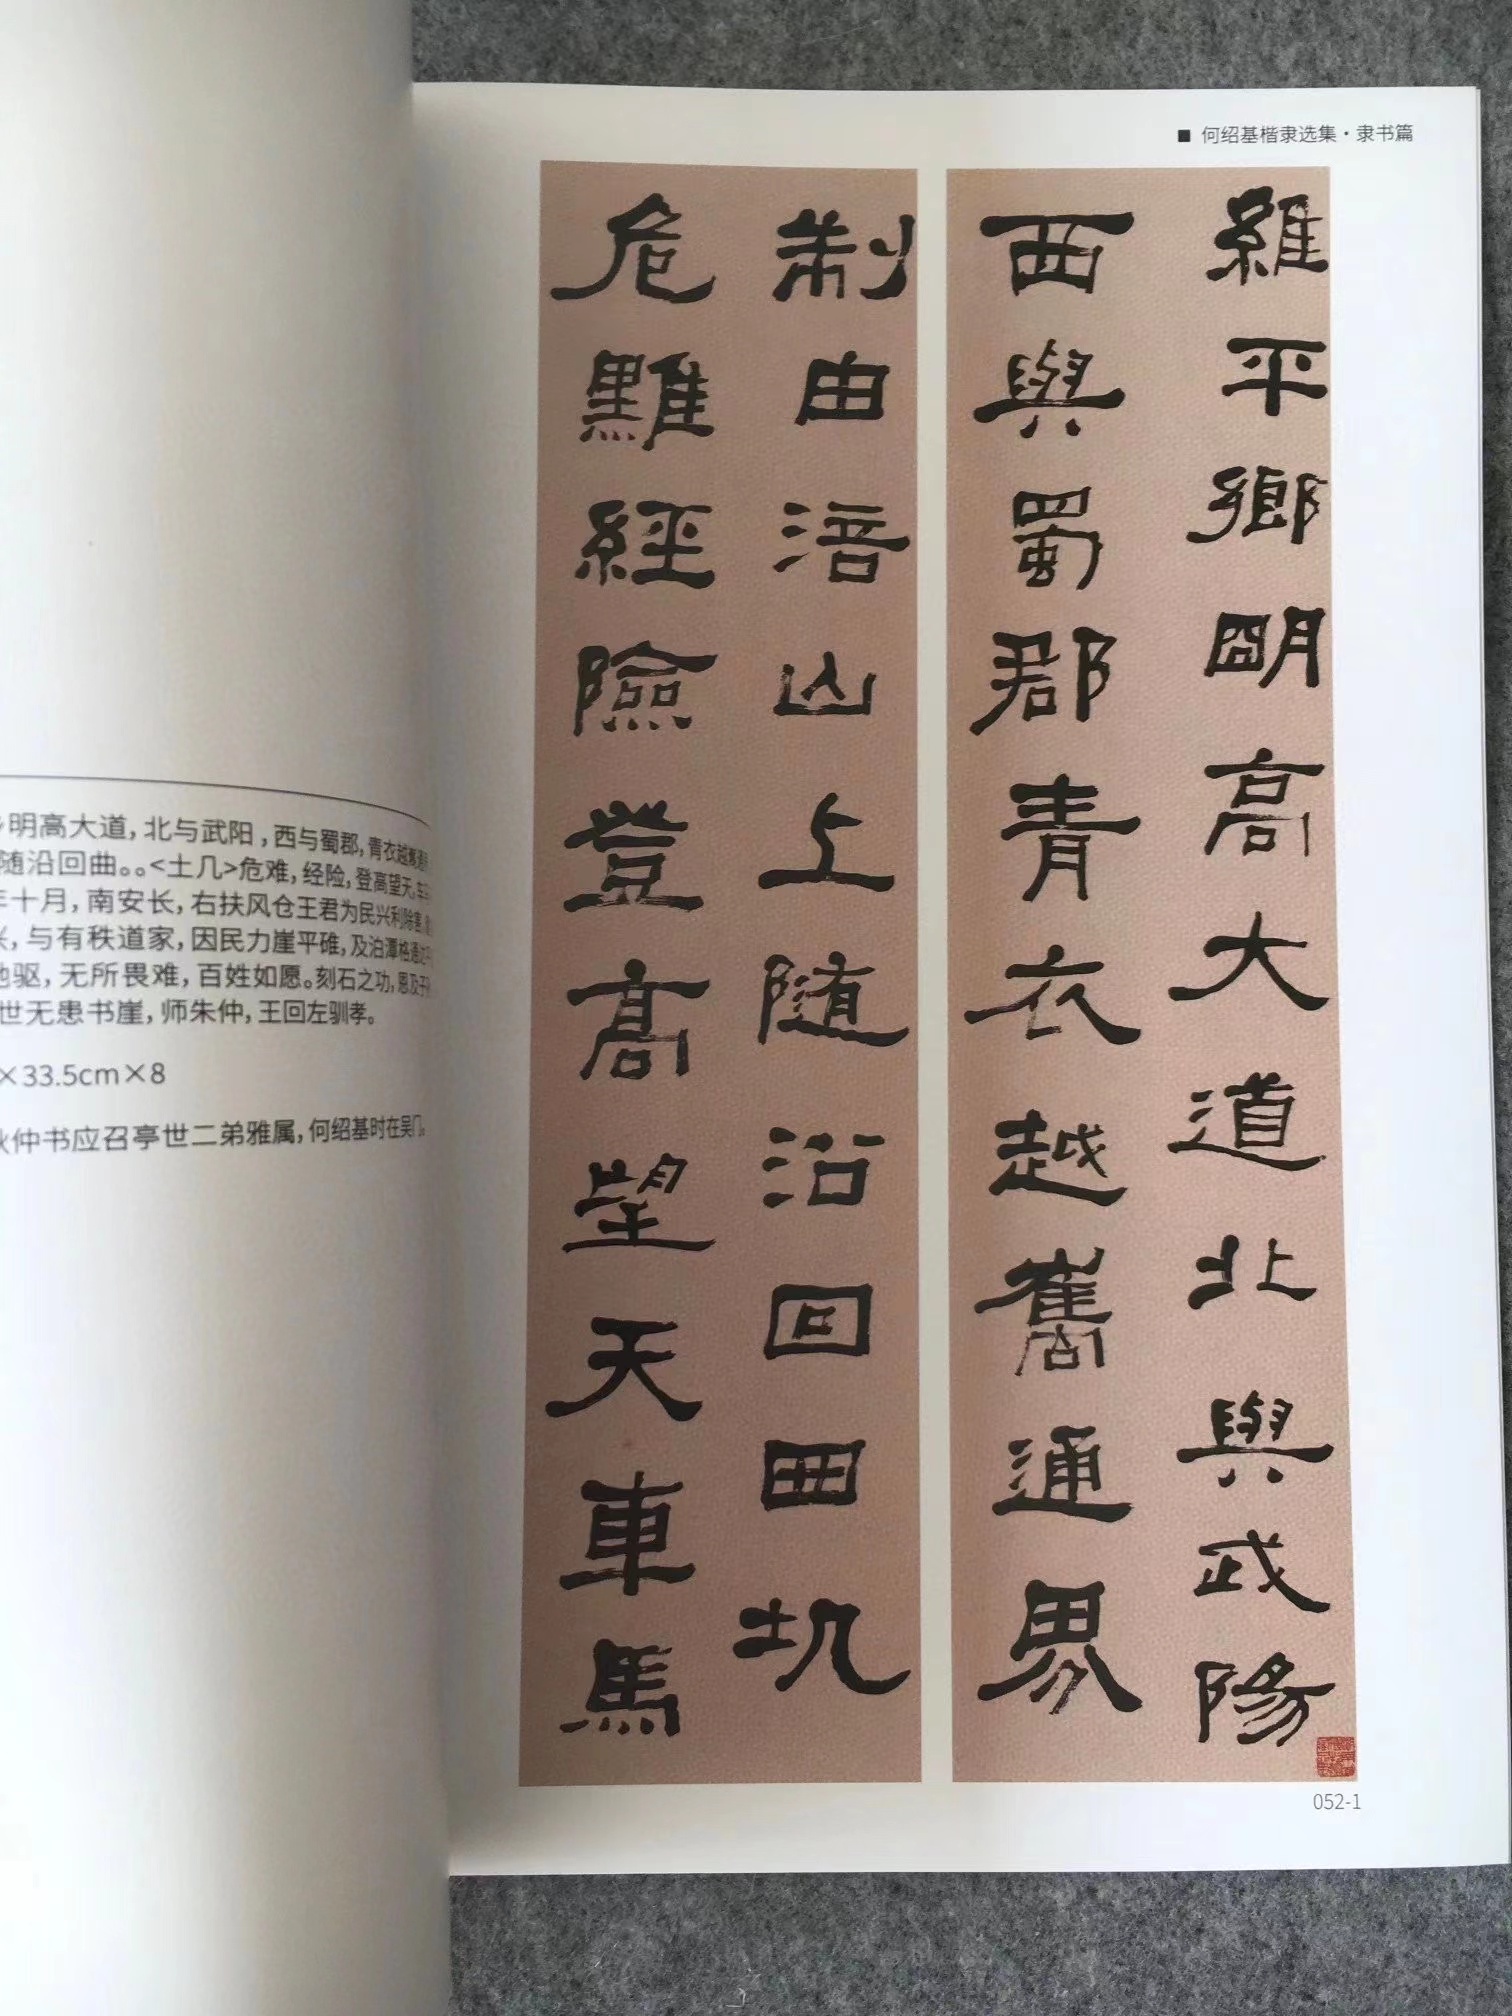 ■ 何绍基楷隶选集·隶书篇
羅平鄉朙高大道北與武陽
西與蜀郡青衣越嶲通界
制由浯山上随沿回曲
危難經險登高望天車馬
052-1
明高大道，北与武阳，西与蜀郡，青衣越嶲通
随沿回曲。。<土几>危难，经险，登高望天，车
年十月，南安长，右扶风仓王君为民兴利除害，
，与有秩道家，因民力崖平碓，及泊潭格通
驱，无所畏难，百姓如愿。刻石之功，恩及子
世无患书崖，师朱仲，王回左驯孝。
×33.5cm×8
仲书应召亭世二弟雅属，何绍基时在吴门。